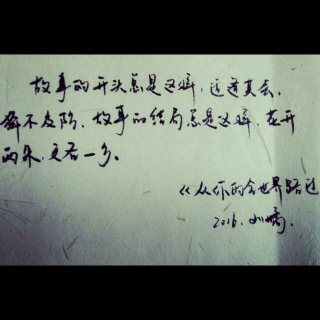 故事的开头总是这样，适逢其会，
猝不及防。故事的结局总是这样，花开
两朵，天各一方。
《从你的全世界路过
2016.